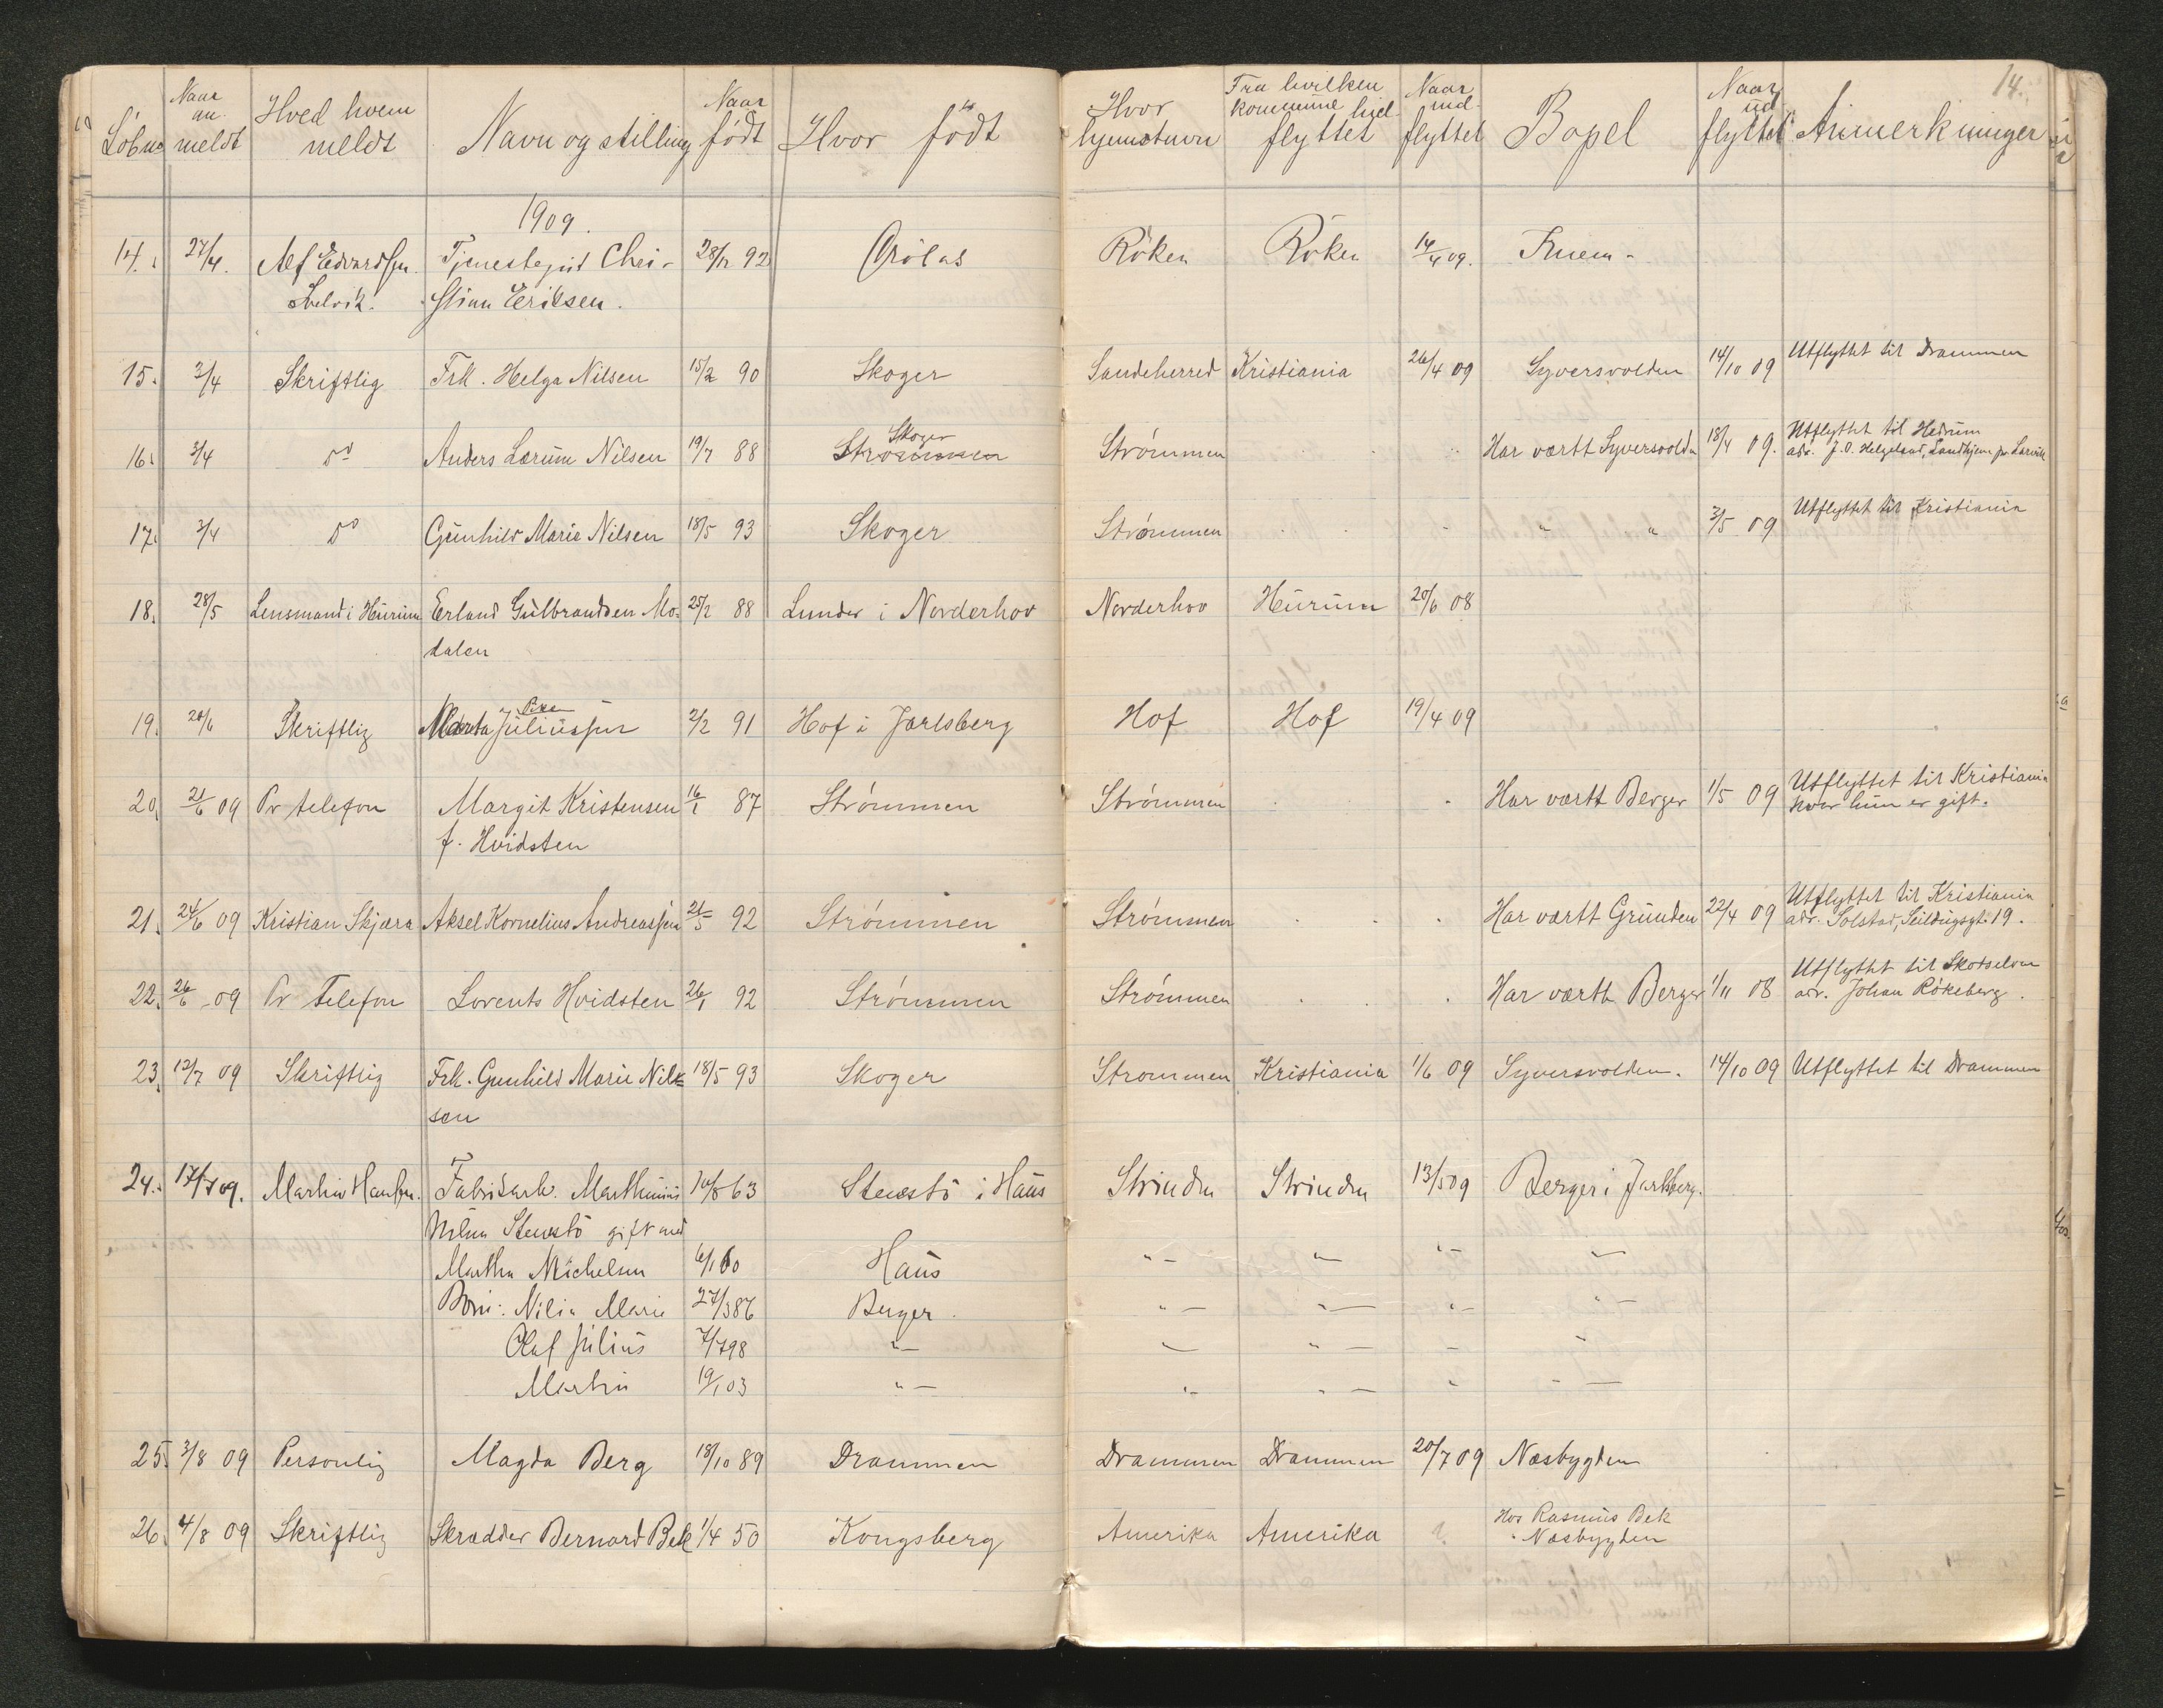 14.
Löbno
Naar an-meldt
Hved hvem meldt
Navn og stilling
Naar födt
Hvor födt
Hvor hjemstavn
Fra hvilken kommune hid-flyttet
Naar ind-flyttet
Bopel
Naar ud flyttet
Anmerkninger
1909.
14. 27/4. Alf Edvardsen Tjenestepid Chri- 28/12 92 Röken Röken 14/4 09. Knem-
Svelvik. stian Eriksen.
15. 3/4 Skriftlig Frk. Helga Nilsen 15/2 90 Skoger Sandeherred Kristiania 26/4 09 Syversvolden 14/10 09 Utflyttet til Drammen
Skoger
16. 3/4 do Anders Lærum Nilsen 19/7 88 Strømmen Strømmen Har værtt Syversvolden 18/4 09. Utflyttet til Hedrum
adr. J.O. Helgeland, Sandhjem pr Larvik
17. 3/4 do Gunhild Marie Nilsen 18/5 93 Skoger Strømmen " " 3/5 09 Utflyttet til Kristiania
18. 28/5 Lensmand i Hurum Erland Gulbrandsen Mo- 25/2 88 Lunder i Norderhov Norderhov Hurum 20/6 08
dalen
19. 20/6 Skriftlig Marta Juliussen 2/2 91 Hof i Jarlsberg Hof Hof 19/4 09
20. 21/6 09 Pr telefon Margit Kristensen 16/1 87 Strømmen Strømmen Har værtt Berger 1/5 09 Utflyttet til Kristiania
f. Hvidsten hvor hun er gift.
21. 24/6 09 Kristian Skjæra Aksel Kornelius Andreassen 21/5 92 Strømmen Strømmen Har værtt Grunden 22/4 09 Utflyttet til Kristiania
adr. Solstad, Seildugsgt. 19.
22. 26/6 09 Pr Telefon Lorents Hvidsten 26/1 92 Strømmen Strømmen Har værtt Berger 1/11 08 Utflyttet til Skotselven
adr. Johan Rökeberg.
23. 13/7 09 Skriftlig Frk. Gunhild Marie Nil- 18/5 93 Skoger Strømmen Kristiania 1/6 09 Syversvolden. 14/10 09 Utflyttet til Drammen
sen
24. 17/7 09. Martin Hansen. Fabrikarb. Marthinius 10/8 63 Stensbö i Haus Strinden Strinden 13/5 09 Berger i Jarlsberg.
Nilsen Stensbö gift med
Martha Michelsen 6/1 60 Haus " - " - " - " -
Börn: Nilia Marie 27/3 86 Berger. " - " - " - " -
Olaf Julius 7/7 98 " - " - " - - " -
Martin 19/1 03 " - " - " - " - " -
25. 3/8 09 Personlig Magda Berg 18/10 89 Drammen Drammen Drammen 20/7 09 Næsbygden
26. 4/8 09 Skriftlig Skrædder Bernard Bek 1/4 50 Kongsberg Amerika Amerika ? Hos Rasmus Bek
i Næsbygden